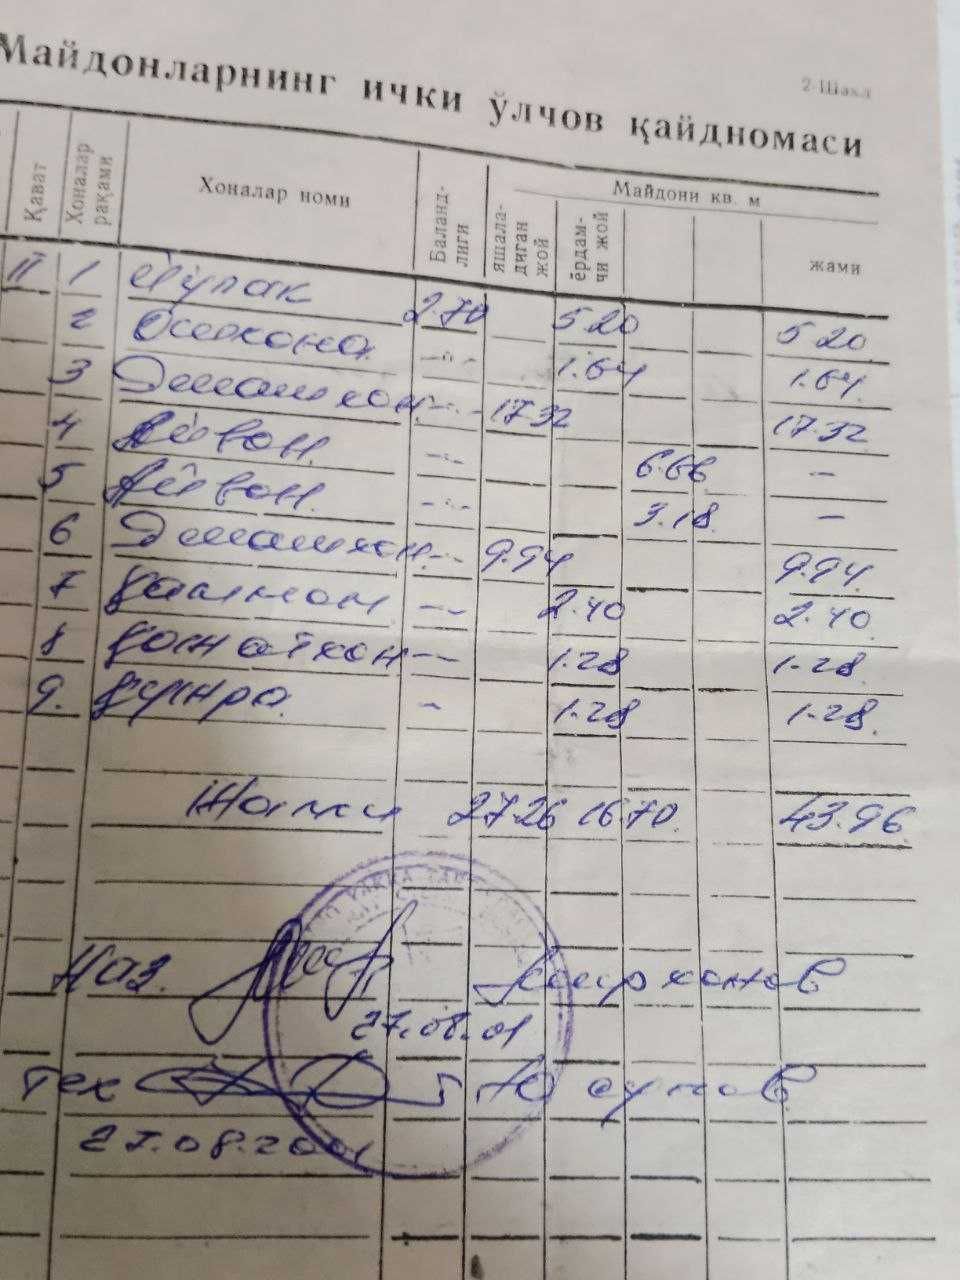 2-Шакл
Майдонларнинг ички ўлчов қайдномаси
Қават Хоналар рақами Хоналар номи Баланд-лиги Майдони кв. м
яшала-диган жой ёрдам-чи жой жами
II 1 Йўлак 2.70 5.20 5.20
2 Ошхона -"- 1.64 1.64
3 -"- 17.32 17.32
4 Айвон -"- 6.66 -
5 Айвон -"- 3.18 -
6 -"- 9.94 9.94
7 -"- 2.40 2.40
8 -"- 1.28 1.28
9. - 1.28 1.28
Жами 27.26 16.70 43.96
Наз.
27.08.01
Тех Юсупов
27.08.2001